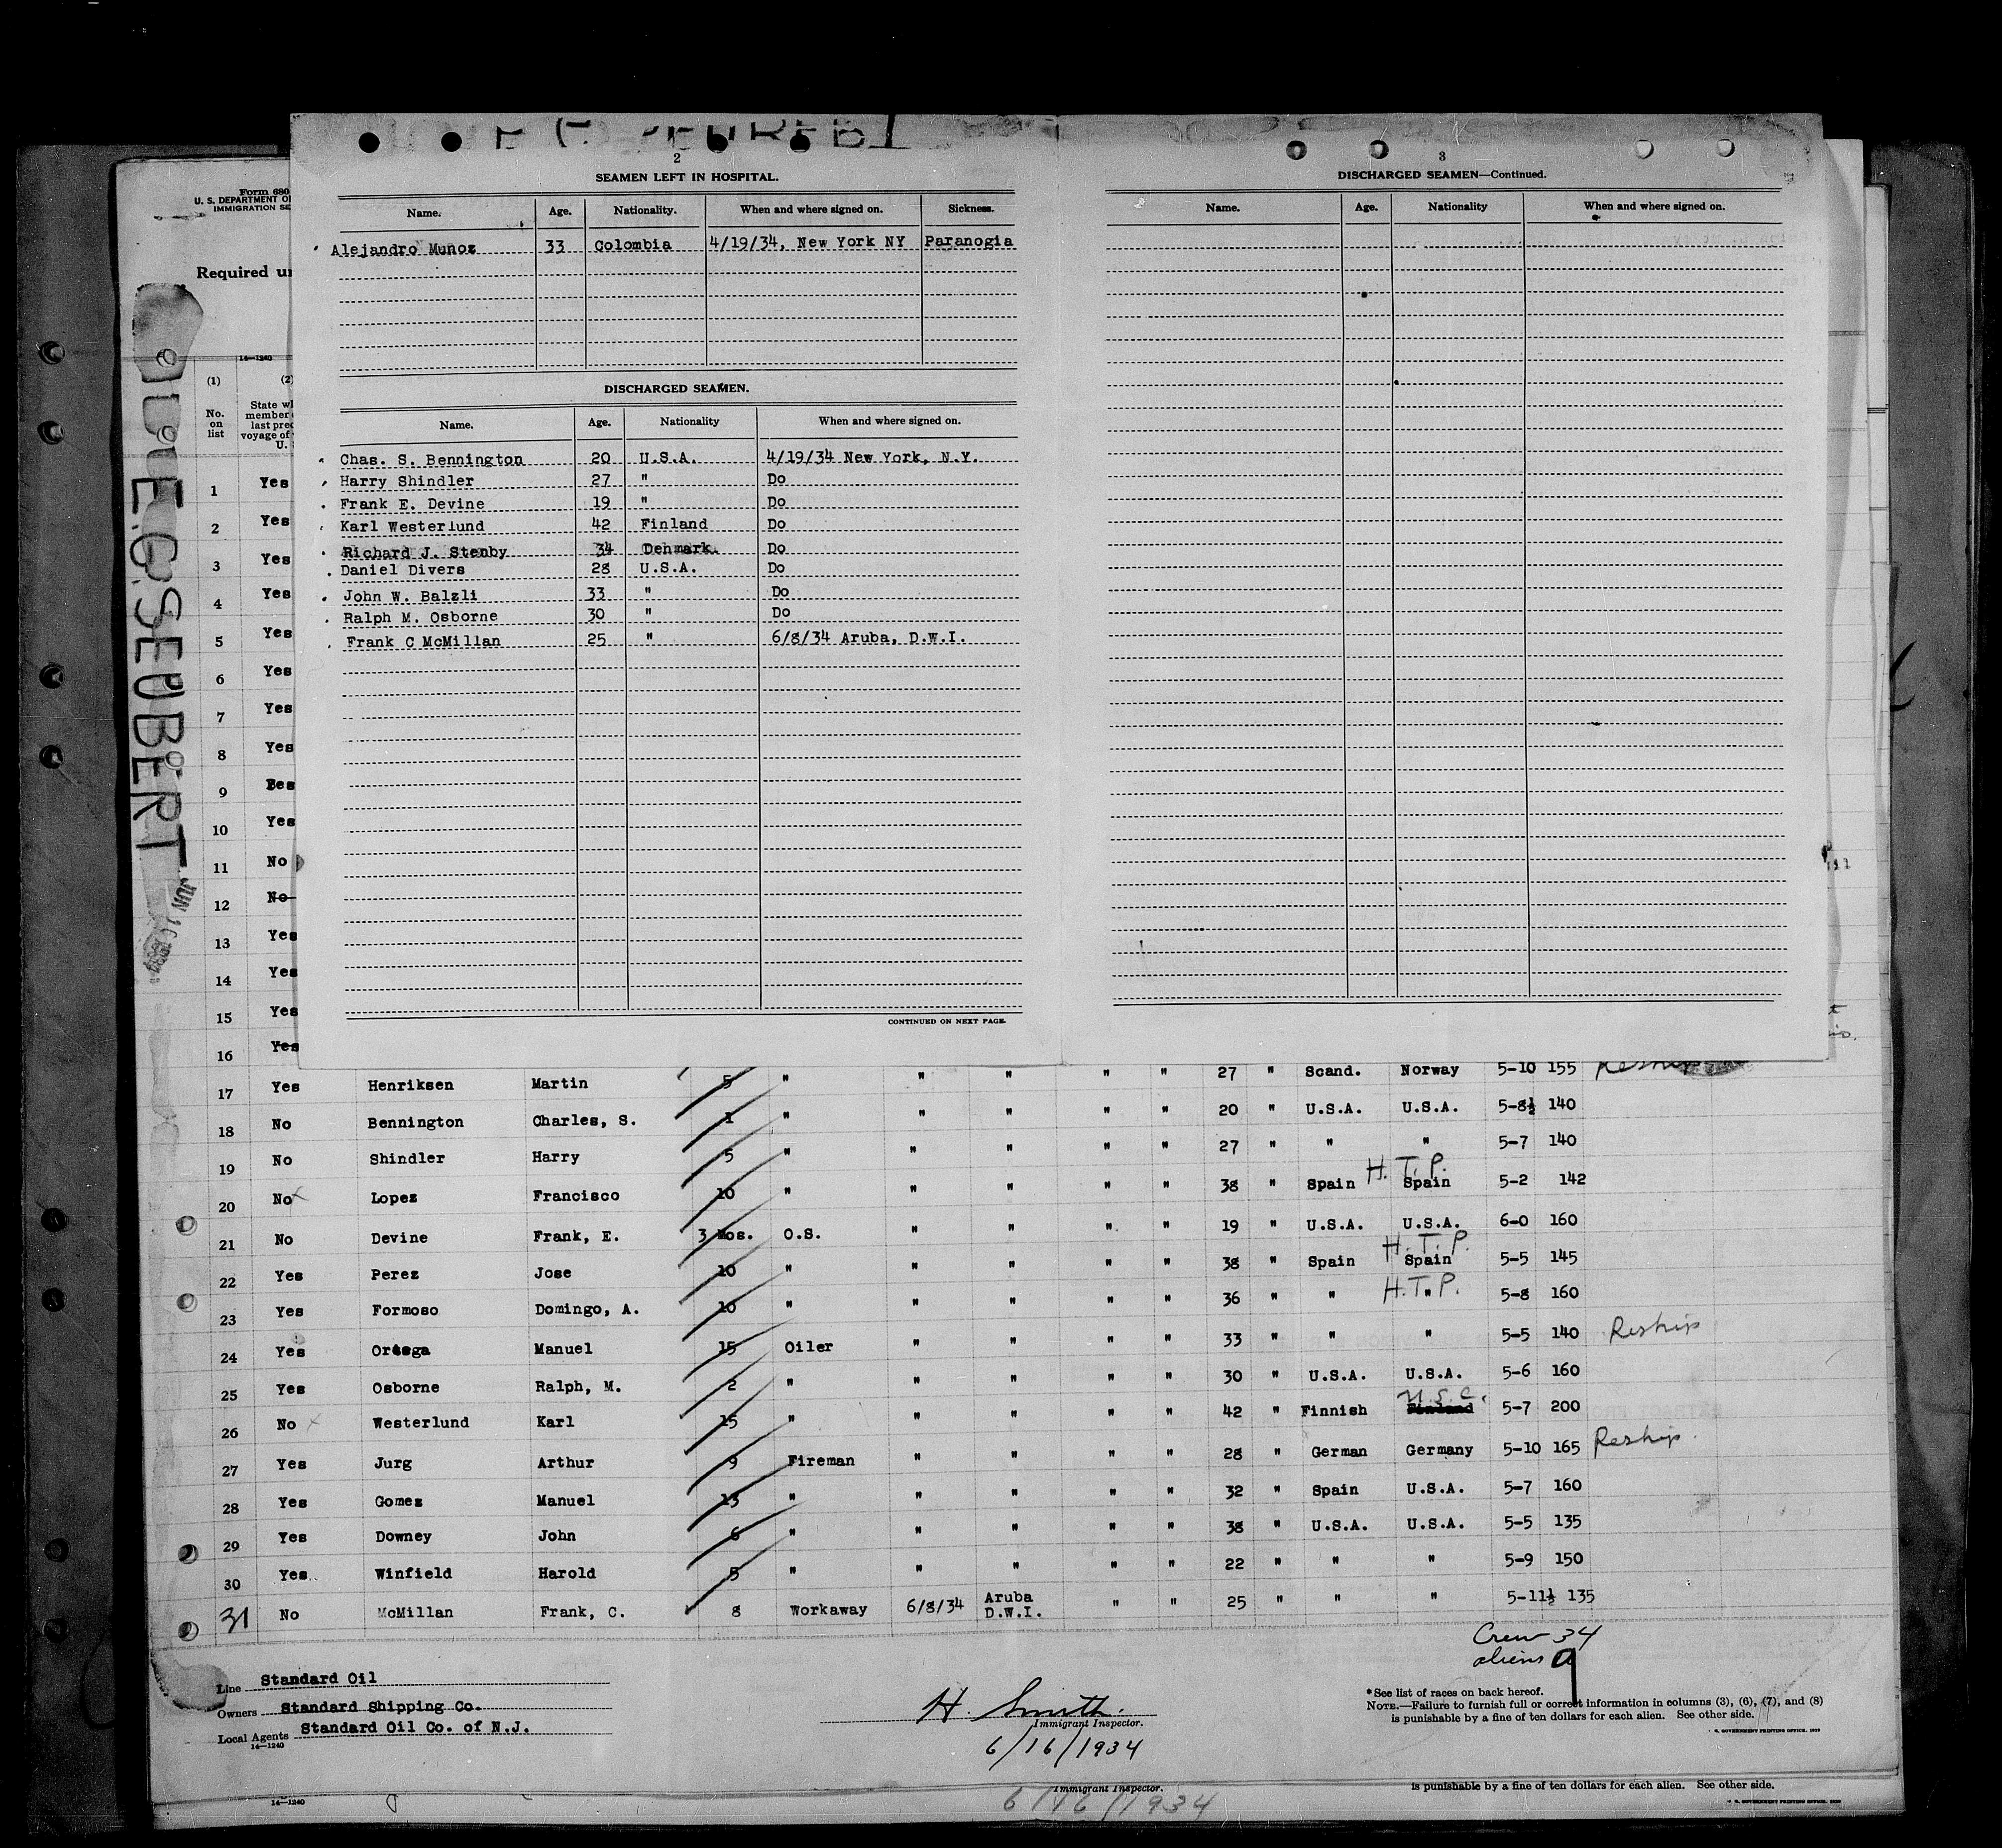 2
SEAMEN LEFT IN HOSPITAL.
Name. Age. Nationality. When and where signed on. Sickness.
Alejandro Munoz 33 Colombia 4/19/34, New York NY Paranogia
DISCHARGED SEAMEN.
Name. Age. Nationality When and where signed on.
Chas. S. Bennington 20 U.S.A. 4/19/34 New York, N.Y.
Harry Shindler 27 " Do
Frank E. Devine 19 " Do
Karl Westerlund 42 Finland Do
Richard J. Stenby 34 Denmark. Do
Daniel Divers 28 U.S.A. Do
John W. Balzli 33 " Do
Ralph M. Osborne 30 " Do
Frank C McMillan 25 " 6/8/34 Aruba, D.W.I.
CONTINUED ON NEXT PAGE.
3
DISCHARGED SEAMEN—Continued.
Name. Age. Nationality When and where signed on.
Form 680
U. S. DEPARTMENT
IMMIGRATION
Required
14—1240
(1) (2)
No. on list
State
member
last
voyage of
U.
E.G. SEUBERT
JUN
1 Yes
2 Yes
3 Yes
4 Yes
5 Yes
6 Yes
7 Yes
8 Yes
9 Bes
10 Yes
11 No
12 No
13 Yes
14 Yes
15 Yes
16 Yes
17 Yes Henriksen Martin 5 " " " " " 27 " Scand. Norway 5-10 155 Reship
18 No Bennington Charles, S. 1 " " " " " 20 " U.S.A. U.S.A. 5-8½ 140
19 No Shindler Harry 5 " " " " " 27 " " " 5-7 140
20 No Lopez Francisco 10 " " " " " 38 " Spain H.T.P. Spain 5-2 142
21 No Devine Frank, E. 3 Mos. O.S. " " " " 19 " U.S.A. U.S.A. 6-0 160
22 Yes Perez Jose 10 " " " " " 38 " Spain H.T.P. Spain 5-5 145
23 Yes Formoso Domingo, A. 10 " " " " " 36 " " H.T.P. " 5-8 160
24 Yes Ortega Manuel 15 Oiler " " " " 33 " " " 5-5 140 Reship
25 Yes Osborne Ralph, M. 2 " " " " " 30 " U.S.A. U.S.A. 5-6 160
26 No Westerlund Karl 15 " " " " " 42 " Finnish U.S.C. Finland 5-7 200
27 Yes Jurg Arthur 9 Fireman " " " " 28 " German Germany 5-10 165 Reship.
28 Yes Gomez Manuel 13 " " " " " 32 " Spain U.S.A. 5-7 160
29 Yes Downey John 6 " " " " " 38 " U.S.A. U.S.A. 5-5 135
30 Yes. Winfield Harold 5 " " " " " 22 " " " 5-9 150
31 No McMillan Frank, C. 8 Workaway 6/8/34 Aruba D.W.I. " " 25 " " " 5-11½ 135
Crew 34
aliens 9
Line Standard Oil
Owners Standard Shipping Co.
Local Agents Standard Oil Co. of N.J.
14—1240
H. Smith.
Immigrant Inspector.
6/16/1934
*See list of races on back hereof.
NOTE.—Failure to furnish full or correct information in columns (3), (6), (7), and (8)
is punishable by a fine of ten dollars for each alien. See other side.
Immigrant Inspector.
6/16/1934
is punishable by a fine of ten dollars for each alien. See other side.
14—1240